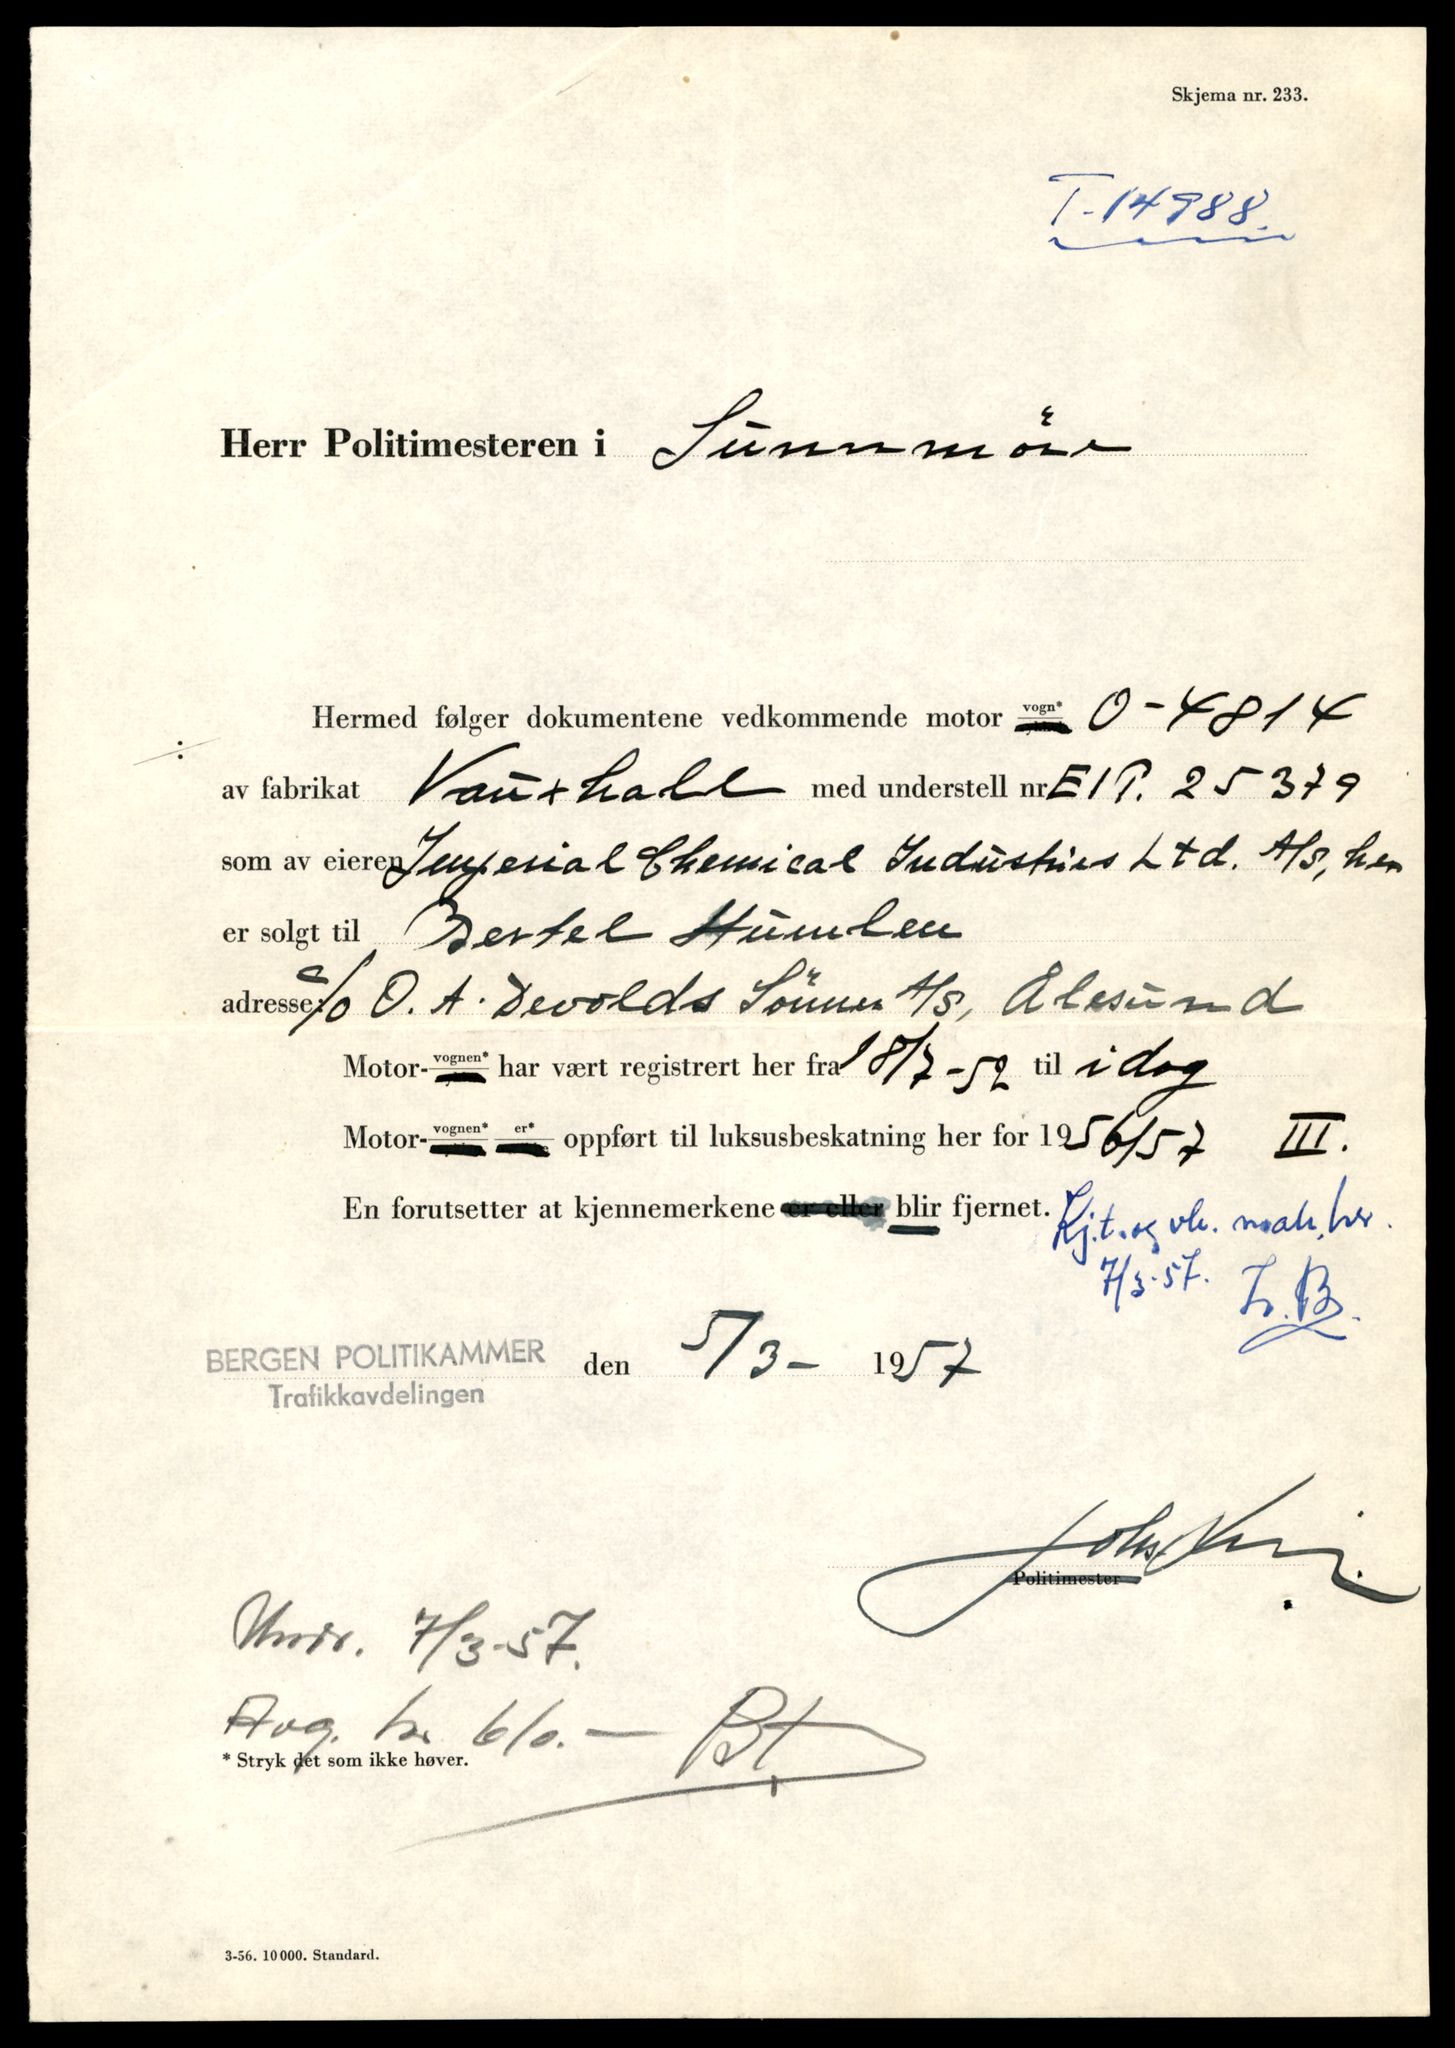 Skjema nr. 233.
T-14988.
Herr Politimesteren i Sunnmöre
Hermed følger dokumentene vedkommende motor vogn* O-4814
÷
av fabrikat Vauxhall med understell nr EIP. 25379
som av eieren Imperial Chemical Industries Ltd. A/S, her
er solgt til Bertel Humlen
adresse: c/o O. A. Devolds Sönner A/S, Ålesund
Motor-vognen* har vært registrert her fra 18/7-52 til idag
Motor-vognen* er* oppført til luksusbeskatning her for 1956/57 III.
En forutsetter at kjennemerkene er eller blir fjernet.
Kj.t. og vk. mah. her.
7/3-57.
BERGEN POLITIKAMMER den 5/3- 1957
Trafikkavdelingen
Politimester
7/3-57.
Avg. kr 610.-
* Stryk det som ikke høver.
3-56. 10000. Standard.